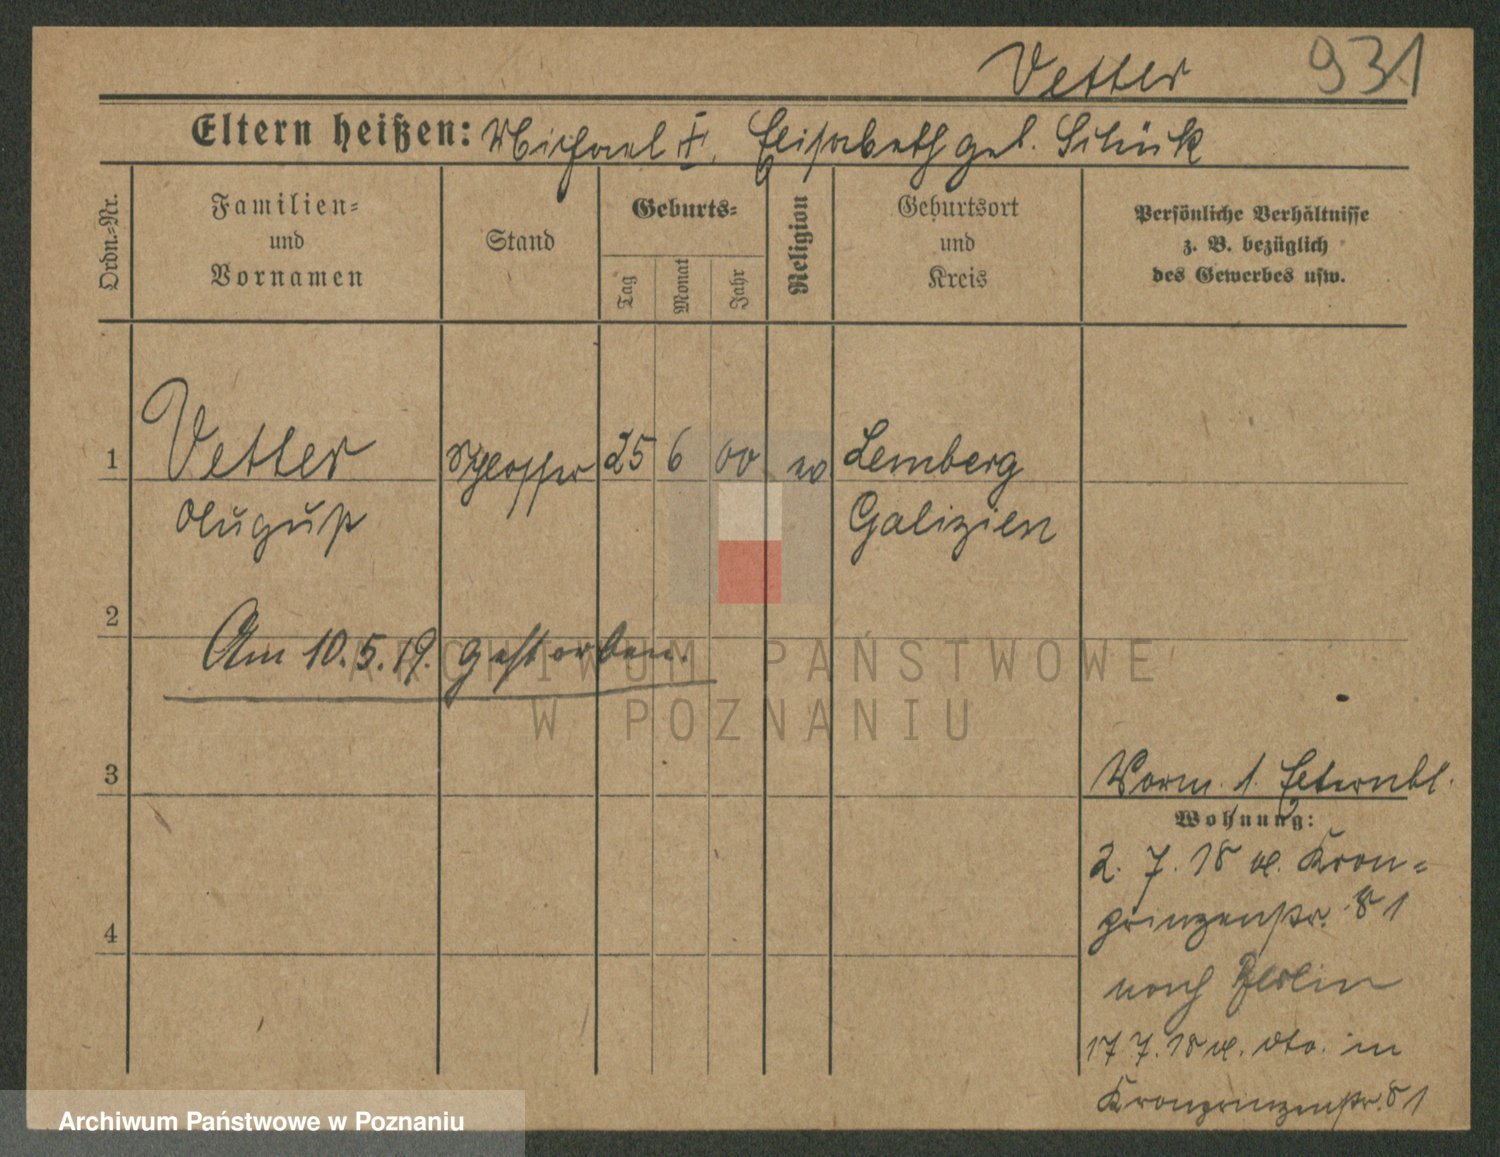 Vetter 931
Eltern heißen: Michael I. Elisabeth geb. Schück
Ordn.-Nr.
Familien-
und
Vornamen
Stand
Geburts-
Tag
Monat
Jahr
Religion
Geburtsort
und
Kreis
Persönliche Verhältnisse
z. B. bezüglich
des Gewerbes usw.
1 Vetter Schlosser 25 6 00 Lemberg
August Galizien
2
Am 10.5.19. gestorben.
3
Vorm. 1.
Wohnung:
2. 7. 18 Kron-
prinzenstr. 81
nach Berlin
17 7. 18 dto. in
Kronprinzenstr. 81
4
ARCHIWUM PAŃSTWOWE
W POZNANIU
Archiwum Państwowe w Poznaniu